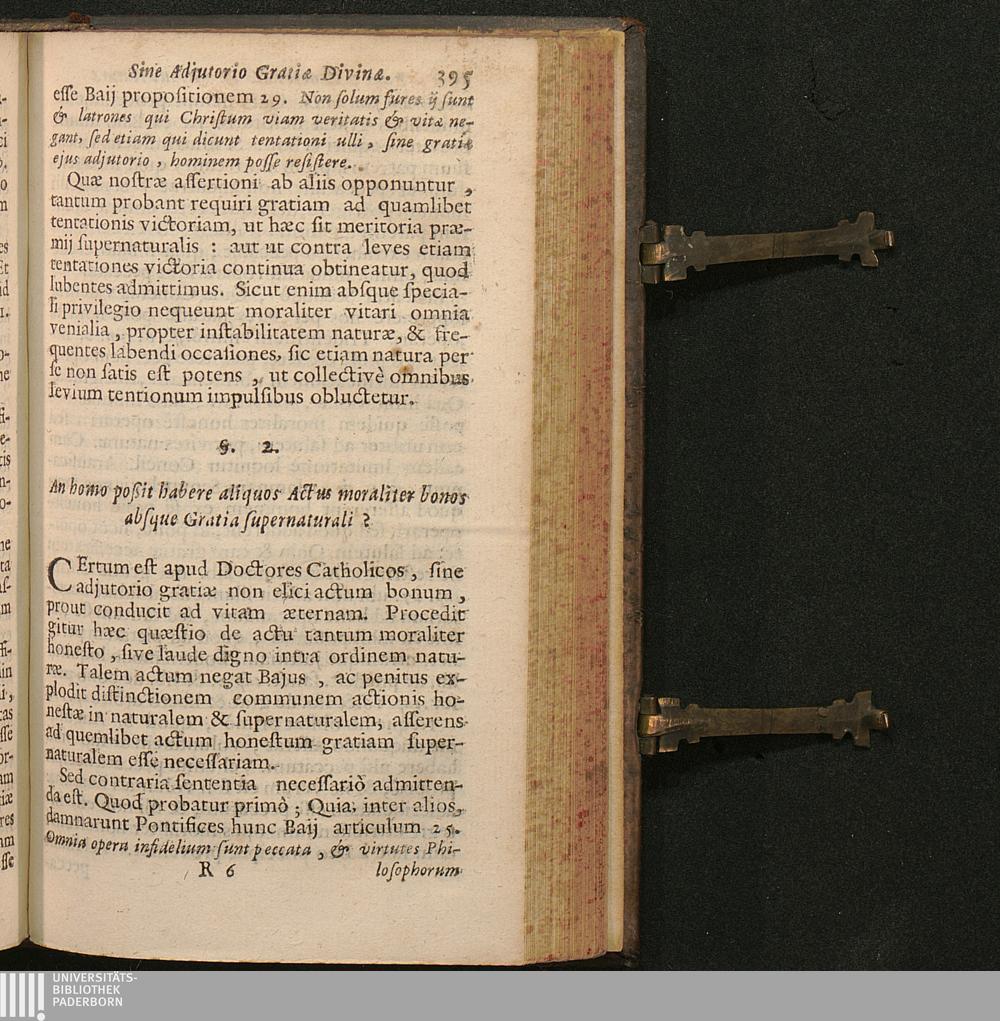 Sine Adjutorio Gratiæ Divinæ. 395
eſſe Baij propoſitionem 29. Non ſolum fures ij ſunt
& latrones qui Chriſtum viam veritatis & vitæ ne-
gant, ſed etiam qui dicunt tentationi ulli, ſine gratiæ
ejus adjutorio, hominem poſſe reſiſtere.
Quæ noſtræ aſſertioni ab aliis opponuntur,
tantum probant requiri gratiam ad quamlibet
tentationis victoriam, ut hæc ſit meritoria præ-
mij ſupernaturalis : aut ut contra leves etiam
tentationes victoria continua obtineatur, quod
lubentes admittimus. Sicut enim abſque ſpecia-
li privilegio nequeunt moraliter vitari omnia
venialia, propter inſtabilitatem naturæ, & fre-
quentes labendi occaſiones, ſic etiam natura per
ſe non ſatis eſt potens, ut collectivè omnibus
levium tentionum impulſibus obluctetur.
§. 2.
An homo poßit habere aliquos Actus moraliter bonos
abſque Gratia ſupernaturali ?
CErtum eſt apud Doctores Catholicos, ſine
adjutorio gratiæ non elici actum bonum,
prout conducit ad vitam æternam. Procedit
gitur hæc quæſtio de actu tantum moraliter
honeſto, ſive laude digno intra ordinem natu-
ræ. Talem actum negat Bajus, ac penitus ex-
plodit diſtinctionem communem actionis ho-
neſtæ in naturalem & ſupernaturalem, aſſerens
ad quemlibet actum honeſtum gratiam ſuper-
naturalem eſſe neceſſariam.
Sed contraria ſententia neceſſariò admitten-
da eſt. Quod probatur primò ; Quia inter alios,
damnarunt Pontifices hunc Baij articulum 25.
Omnia opera infidelium ſunt peccata, & virtutes Phi-
R 6 loſophorum
UNIVERSITÄTS-
BIBLIOTHEK
PADERBORN